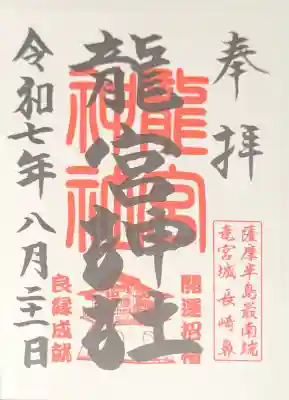 奉拝
薩摩半島最南端
竜宮城 長崎鼻
龍宮神社
龍宮
神社
開運招福
良縁成就
令和七年八月二十一日